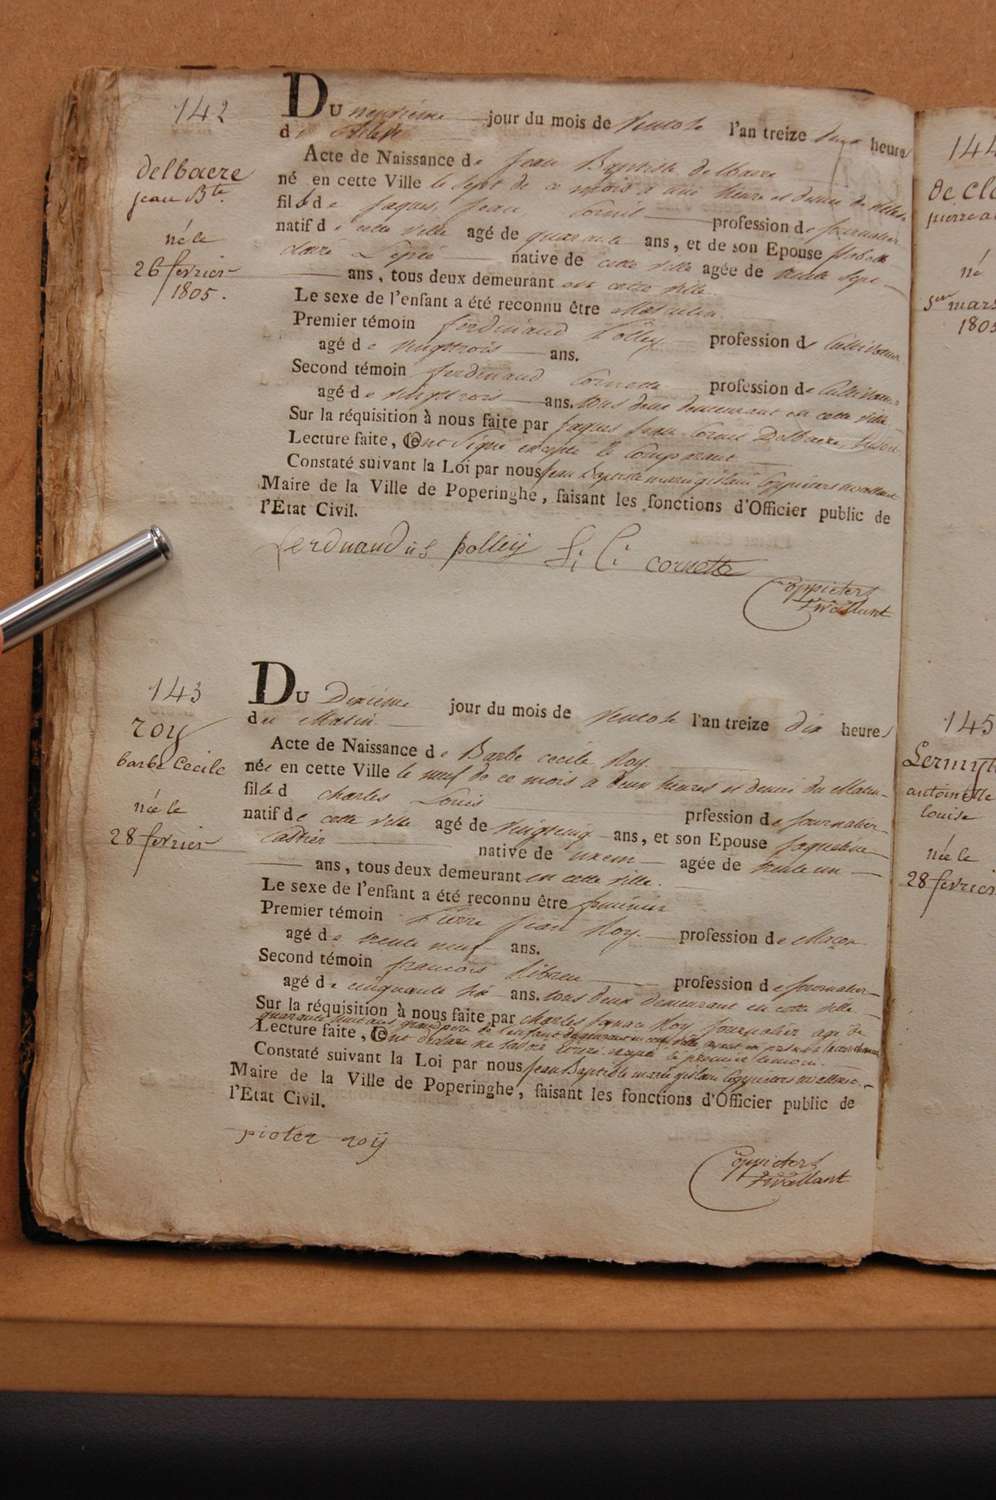 142
delbaere
jean Bte
né le
26 fevrier
1805.
Du neuvième jour du mois de Ventose l'an treize heure
de
Acte de Naissance de Jean Baptiste delbaere
né en cette Ville le sept de ce mois a une heure et demie de
fils de Jaques Jean Cornil profession de Journalier
natif de cette ville agé de quarante ans, et de son Epouse
native de cette ville agée de trente sept
ans, tous deux demeurant en cette ville
Le sexe de l'enfant a été reconnu être Masculin
Premier témoin ferdinand Polley profession de Cultivateur
agé de vingt trois ans.
Second témoin ferdinand Cornette profession de Cultivateur
agé de ans. tous deux demeurant en cette ville
Sur la réquisition à nous faite par Jaques Jean Cornil Delbaere,
Lecture faite, Ont signé excepté le Comparant
Constaté suivant la Loi par nous Jean Baptiste marie gislain Coppieters
Maire de la Ville de Poperinghe, faisant les fonctions d'Officier public de
l'État Civil.
ferdinandus polleij f: C: cornette
Coppieters
t'wallant
143
roy
barbe Cecile
née le
28 fevrier
Du Dixième jour du mois de Ventose l'an treize dix heures
du Matin
Acte de Naissance de Barbe cecile Roy
née en cette Ville le neuf de ce mois a deux heures et demie du Matin
fille d charles Louis prfession de Journalier
natif de cette ville agé de vingtcinq ans, et son Epouse Jaqueline
native de agée de trente un
ans, tous deux demeurant en cette ville.
Le sexe de l'enfant a été reconnu être feminin
Premier témoin Pierre Jean Roy profession de Maçon
agé de trente neuf ans.
Second témoin francois profession de Journalier
agé de cinquante six ans. tous deux demeurant en cette ville
Sur la réquisition à nous faite par charles Ignace Roy Journalier agé de
quarante huit ans grand père de l'enfant demeurant en cette ville
Lecture faite, Ont declaré ne savoir ecrire excepté le premier temoin.
Constaté suivant la Loi par nous Jean Baptiste marie gislain Coppieters
Maire de la Ville de Poperinghe, faisant les fonctions d'Officier public de
l'Etat Civil.
pieter roij
Coppieters
t'wallant
144
De Cle
pierre
né
5er mars
1805
145
Lermyt
antoinette
louise
née le
28 fevrier